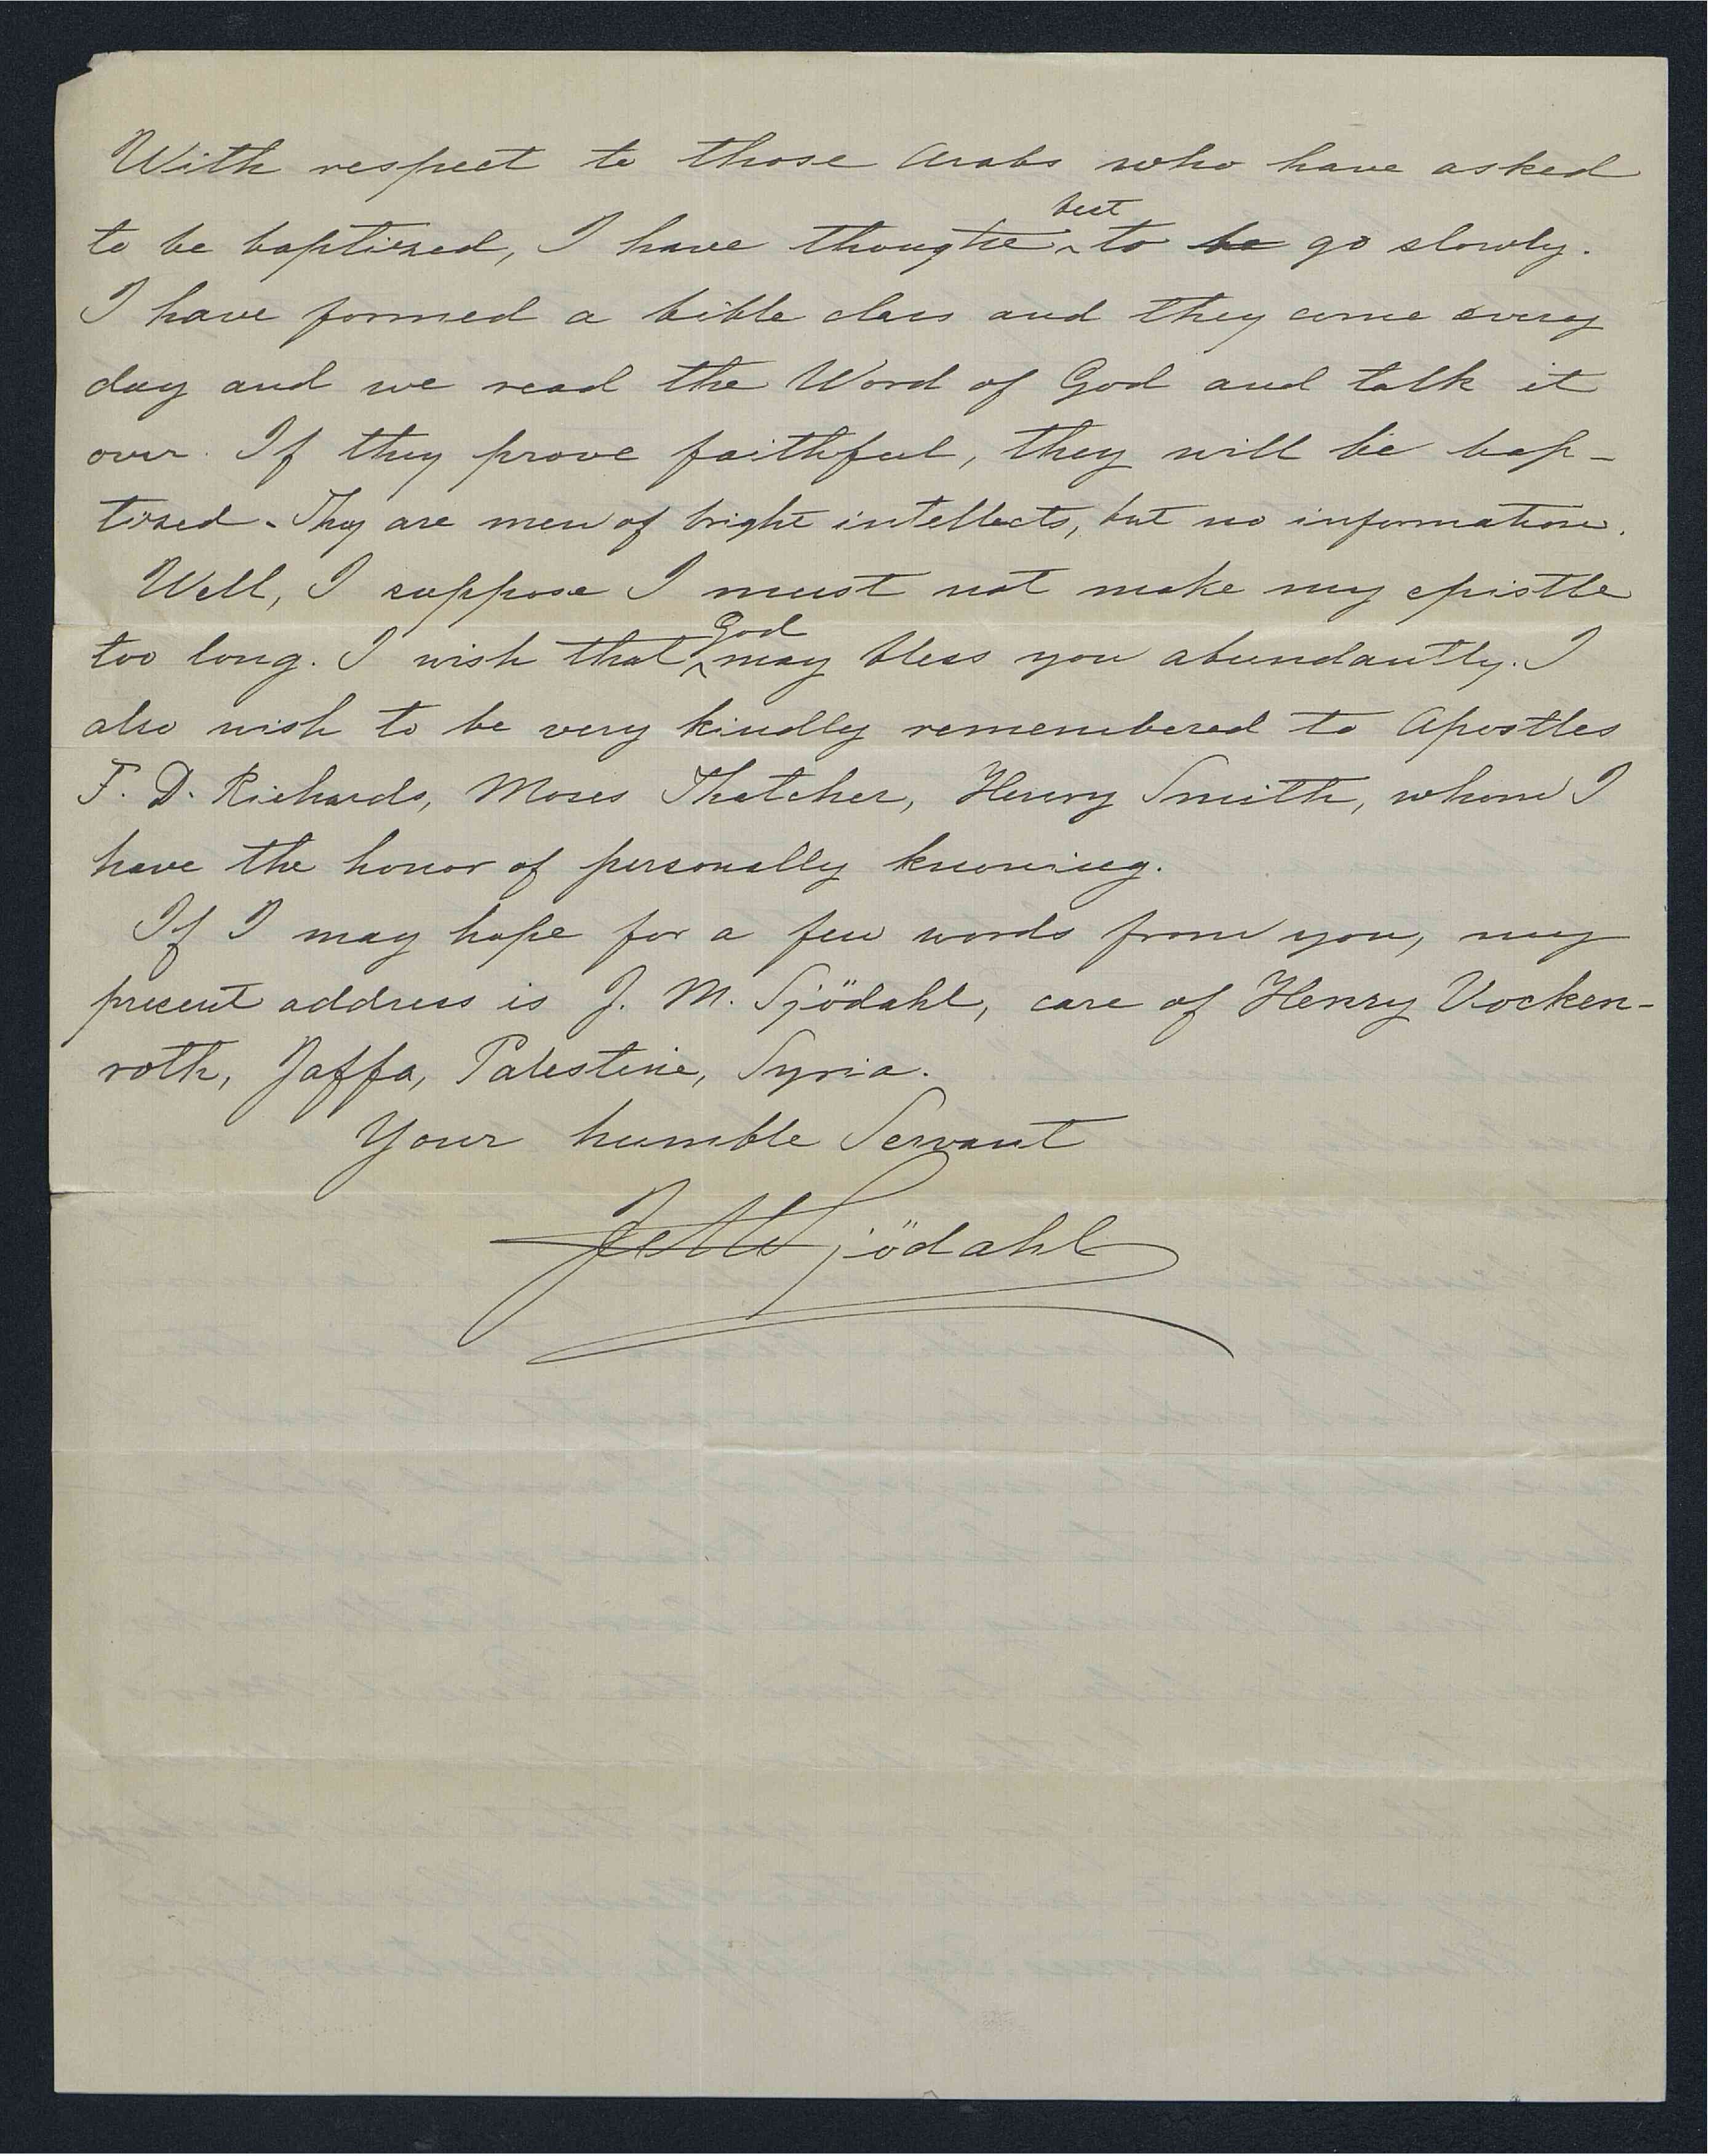 With respect to those Arabs who have asked
best
to be baptized, I have thought ^ to be go slowly.
I have formed a bible class and they come every
day and we read the Word of God and talk it
over. If they prove faithful, they will be bap-
tized. They are men of bright intellects, but no information.
Well, I suppose I must not make my epistle
God
too long. I wish that ^ may bless you abundantly. I
also wish to be very kindly remembered to Apostles
F. D. Richards, Moses Thatcher, Henry Smith, whom I
have the honor of personally knowing.
If I may hope for a few words from you, my
present address is J. M. Sjödahl, care of Henry Vocken-
roth, Jaffa, Palestine, Syria.
Your humble Servant
J. M. Sjödahl